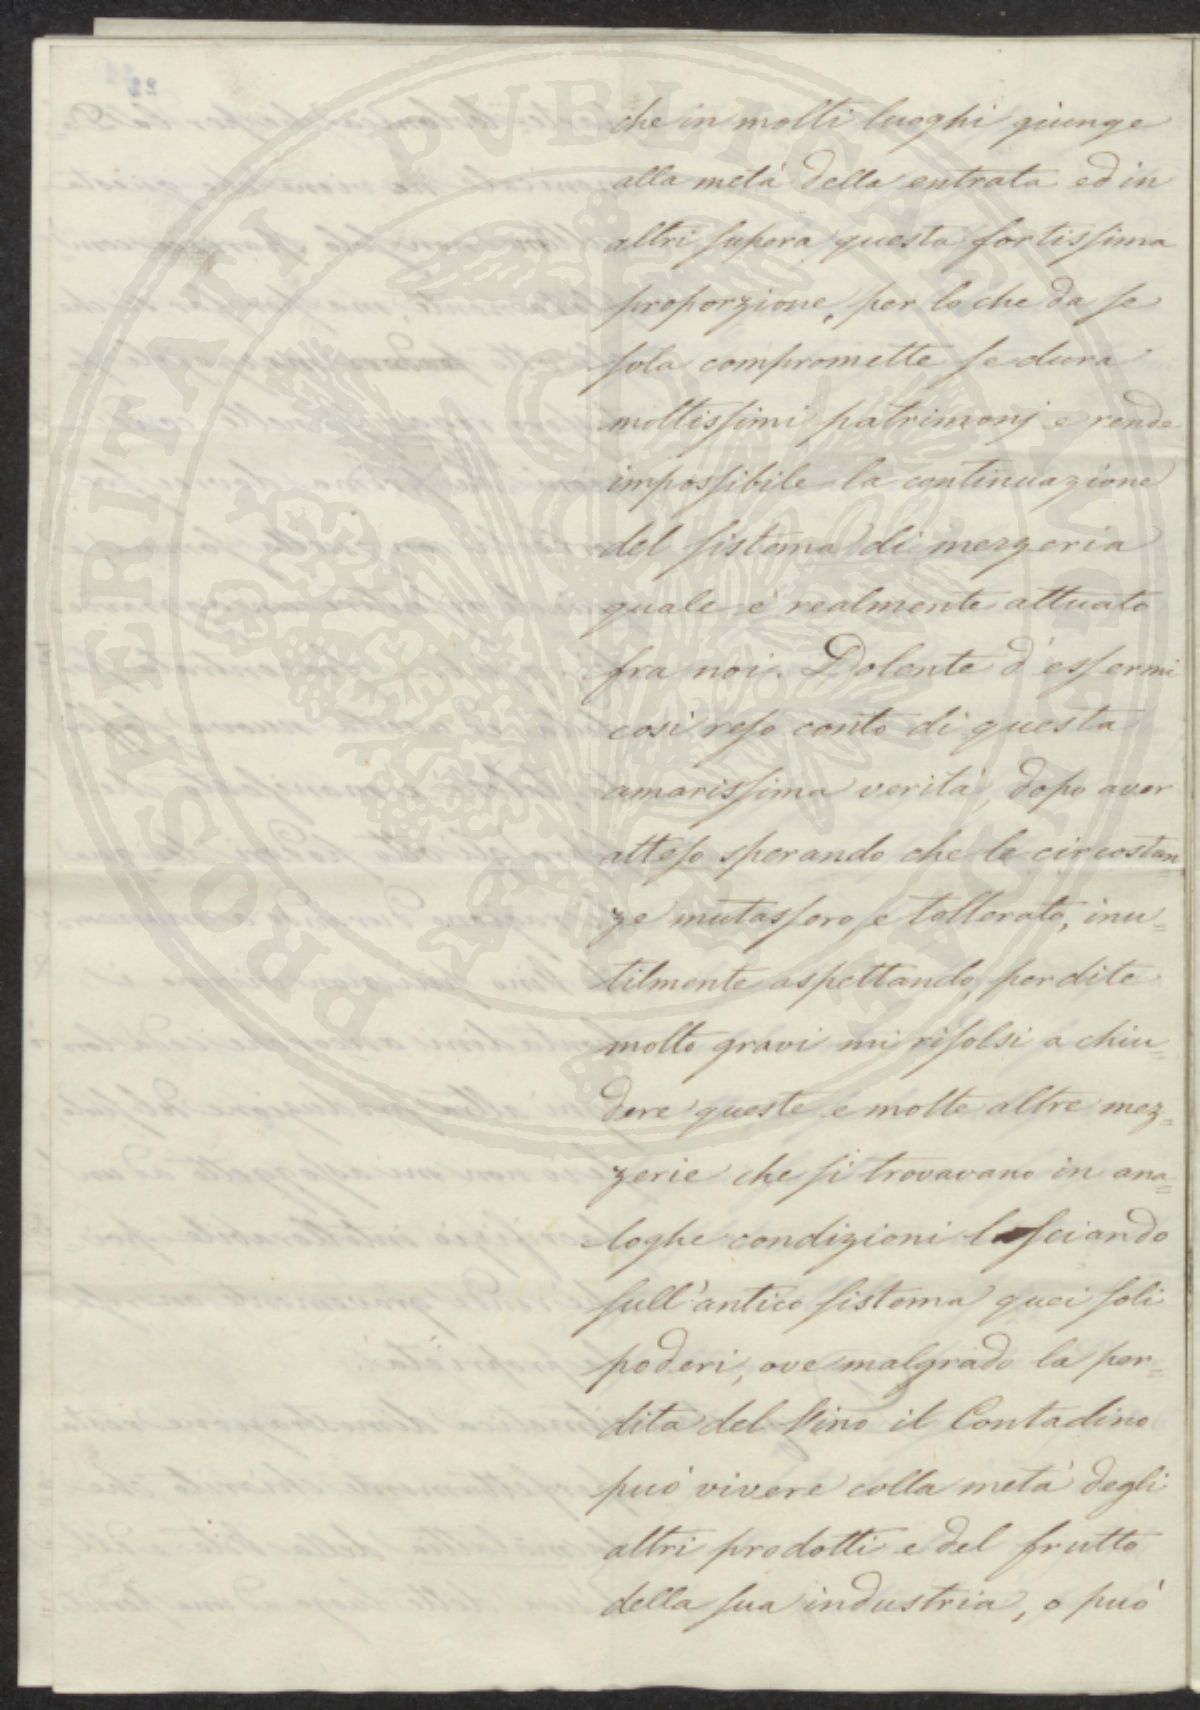 che in molti luoghi giunge
alla metà della entrata ed in
altri supera questa fortissima
proporzione, per lo che da se
sola compromette se dura
moltissimi patrimonj e rende
impossibile la continuazione
del sistema di mezzeria
quale è realmente attuato
fra noi. Dolente d'essermi
così reso conto di questa
amarissima verità, dopo aver
atteso sperando che le circostan
ze mutassero e tollerato, inu=
tilmente aspettando, perdite
molto gravi mi risolsi a chiu=
dere queste e molte altre mez=
zerie che si trovavano in ana=
loghe condizioni lasciando
sull'antico sistema quei soli
poderi, ove malgrado la per=
dita del Vino il Contadino
può vivere colla metà degli
altri prodotti e del frutto
della sua industria, o può
PROSPERITATI PVBLICAE AVGENDAE